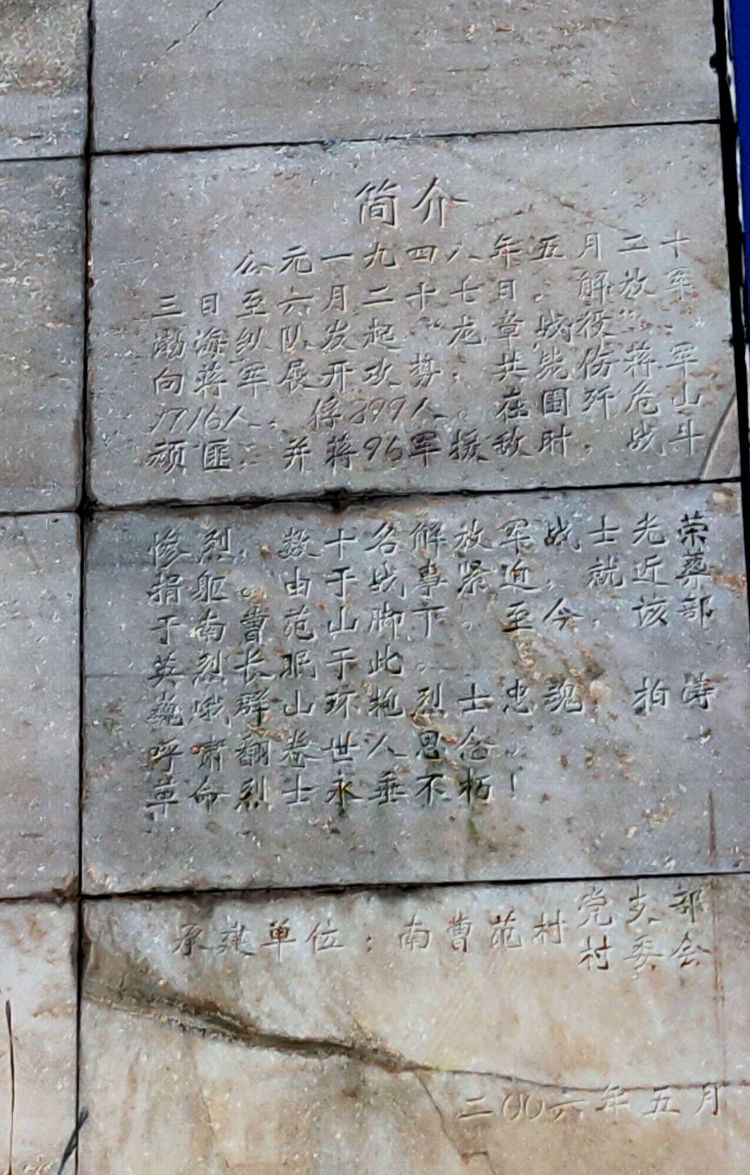 简介
公元一九四八年五月二十
三日至六月二十七日，解放军
渤海纵队发起“龙章战役”，
向蒋军展开攻势，共毙伤蒋军
1716人，俘399人。在围歼危山
顽匪，并蒋96军援敌时，战斗
惨烈，数十名解放军战士光荣
捐躯。由于战事紧，就近葬
于南曹范山脚下。至今，该部
英烈长眠于此。
巍峨群山环抱烈士忠魂，柏涛
呼啸翻卷世人思念。
革命烈士永垂不朽！
承建单位：南曹范村党支部
村委会
二00六年五月